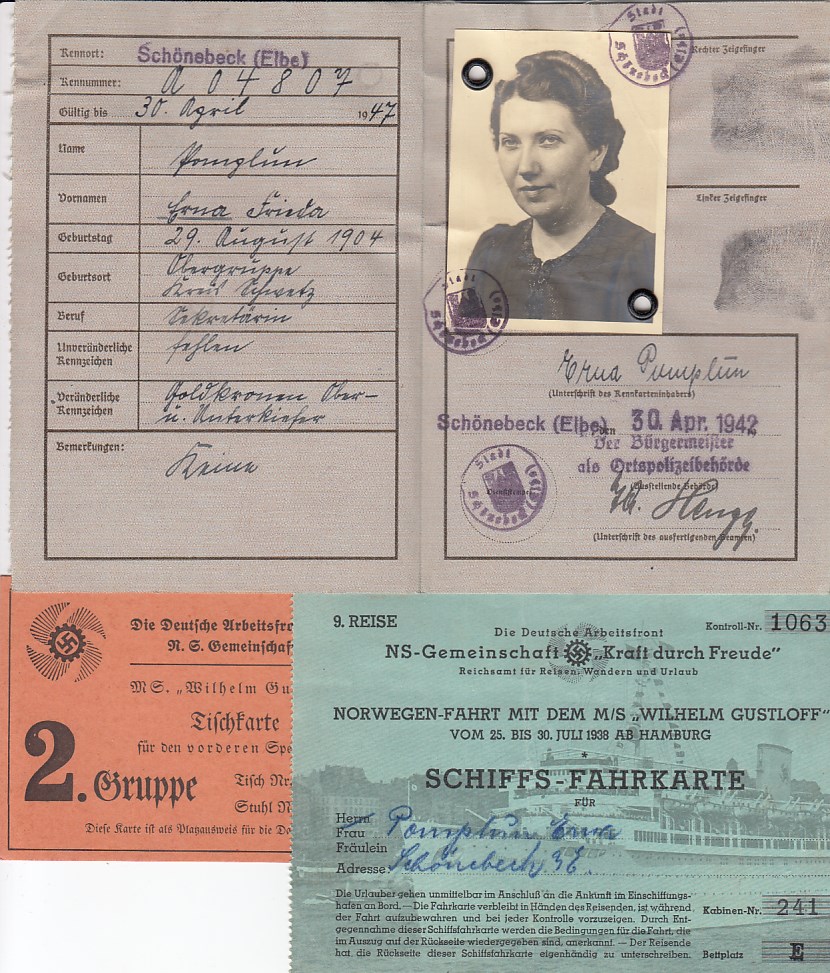 Kennort: Schönebeck (Elbe)
Kennummer: A 04807
Gültig bis 30. April 1947
Name Pomplun
Vornamen Erna Frieda
Geburtstag 29. August 1904
Geburtsort Obergruppe
Kreis Schwetz
Beruf Sekretärin
Unveränderliche Kennzeichen fehlen
Veränderliche Kennzeichen Goldkronen Ober-
u. Unterkiefer
Bemerkungen: Keine
Stadt Schönebeck (Elbe)
Rechter Zeigefinger
Linker Zeigefinger
Stadt Schönebeck (Elbe)
Erna Pomplun
(Unterschrift des Kennkarteninhabers)
Schönebeck (Elbe), den 30. Apr. 1942
Der Bürgermeister
als Ortspolizeibehörde
(Ausstellende Behörde)
Stadt Schönebeck (Elbe)
(Unterschrift des ausfertigenden Beamten)
Die Deutsche Arbeitsfro
N. S. Gemeinschaf
MS. „Wilhelm Gu
Tischkarte
für den vorderen Spe
2. Gruppe
Tisch Nr.
Stuhl N
Diese Karte ist als Platzausweis für die De
9. REISE
Kontroll-Nr. 1063
Die Deutsche Arbeitsfront
NS-Gemeinschaft „Kraft durch Freude"
Reichsamt für Reisen, Wandern und Urlaub
NORWEGEN-FAHRT MIT DEM M/S „WILHELM GUSTLOFF"
VOM 25. BIS 30. JULI 1938 AB HAMBURG
*
SCHIFFS-FAHRKARTE
FÜR
Herrn
Frau Pomplun Erna
Fräulein
Adresse: Schönebeck
Die Urlauber gehen unmittelbar im Anschluß an die Ankunft im Einschiffungs-
hafen an Bord. — Die Fahrkarte verbleibt in Händen des Reisenden, ist während
der Fahrt aufzubewahren und bei jeder Kontrolle vorzuzeigen. Durch Ent-
gegennahme dieser Schiffsfahrkarte werden die Bedingungen für die Fahrt, die
im Auszug auf der Rückseite wiedergegeben sind, anerkannt. — Der Reisende
hat die Rückseite dieser Schiffsfahrkarte eigenhändig zu unterschreiben.
Kabinen-Nr. 241
Bettplatz E